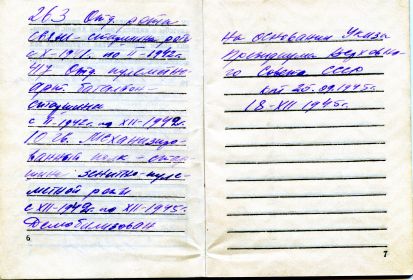 263 Отд. рота
связи - старшина роты
с X-1941г. по II-1942г.
417 Отд. пулеметн.
арт. батальон -
старшина
с II.1942г. по XII-1942г.
10 гв. Механизиро-
ванный полк - стар-
шина зенитно-пуле-
метной роты
с XII-1942г. по XII-1945г.
Демобилизован
6
На основании Указа
Президиума Верховно-
го Совета СССР
от 25.09.1945г.
18-XII-1945г.
7